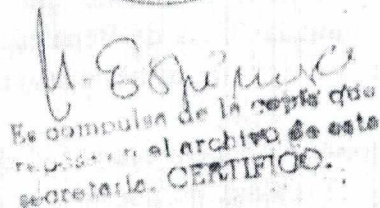 Es compulsa de la copia que
reposa en el archivo de esta
secretaría. CERTIFICO.